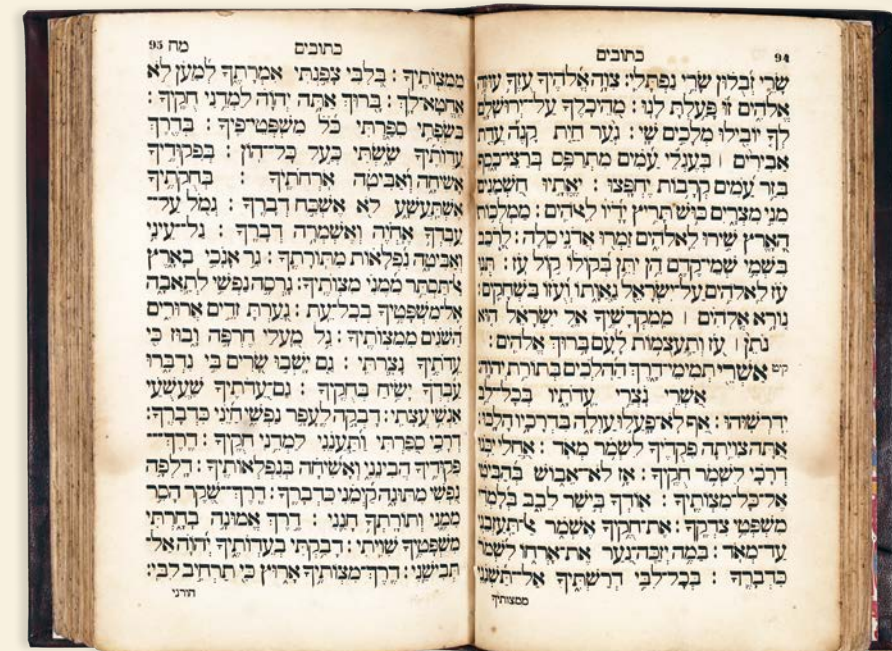 94 כתובים
שָׂרֵי זְבֻלוּן שָׂרֵי נַפְתָּלִי: צִוָּה אֱלֹהֶיךָ עֻזֶּךָ עוּזָּה
אֱלֹהִים זוּ פָּעַלְתָּ לָּנוּ: מֵהֵיכָלֶךָ עַל־יְרוּשָׁלָםִ
לְךָ יוֹבִילוּ מְלָכִים שָׁי: גְּעַר חַיַּת קָנֶה עֲדַת
אַבִּירִים ׀ בְּעֶגְלֵי עַמִּים מִתְרַפֵּס בְּרַצֵּי־כָסֶף
בִּזַּר עַמִּים קְרָבוֹת יֶחְפָּצוּ: יֶאֱתָיוּ חַשְׁמַנִּים
מִנִּי מִצְרָיִם כּוּשׁ תָּרִיץ יָדָיו לֵאלֹהִים: מַמְלְכוֹת
הָאָרֶץ שִׁירוּ לֵאלֹהִים זַמְּרוּ אֲדֹנָי סֶלָה: לָרֹכֵב
בִּשְׁמֵי שְׁמֵי־קֶדֶם הֵן יִתֵּן בְּקוֹלוֹ קוֹל עֹז: תְּנוּ
עֹז לֵאלֹהִים עַל־יִשְׂרָאֵל גַּאֲוָתוֹ וְעֻזּוֹ בַּשְּׁחָקִים:
נוֹרָא אֱלֹהִים ׀ מִמִּקְדָּשֶׁיךָ אֵל יִשְׂרָאֵל הוּא
נֹתֵן ׀ עֹז וְתַעֲצֻמוֹת לָעָם בָּרוּךְ אֱלֹהִים:
קיט אַשְׁרֵי תְמִימֵי־דָרֶךְ הַהֹלְכִים בְּתוֹרַת יְהוָה:
אַשְׁרֵי נֹצְרֵי עֵדֹתָיו בְּכָל־לֵב
יִדְרְשׁוּהוּ: אַף לֹא־פָעֲלוּ עַוְלָה בִּדְרָכָיו הָלָכוּ:
אַתָּה צִוִּיתָה פִקֻּדֶיךָ לִשְׁמֹר מְאֹד: אַחֲלַי יִכֹּנוּ
דְרָכָי לִשְׁמֹר חֻקֶּיךָ: אָז לֹא־אֵבוֹשׁ בְּהַבִּיטִי
אֶל־כָּל־מִצְוֹתֶיךָ: אוֹדְךָ בְּיֹשֶׁר לֵבָב בְּלָמְדִי
מִשְׁפְּטֵי צִדְקֶךָ: אֶת־חֻקֶּיךָ אֶשְׁמֹר אַל־תַּעַזְבֵנִי
עַד־מְאֹד: בַּמֶּה יְזַכֶּה־נַּעַר אֶת־אָרְחוֹ לִשְׁמֹר
כִּדְבָרֶךָ: בְּכָל־לִבִּי דְרַשְׁתִּיךָ אַל־תַּשְׁגֵּנִי
ממצותיך
כתובים מח 95
מִמִּצְוֹתֶיךָ: בְּלִבִּי צָפַנְתִּי אִמְרָתֶךָ לְמַעַן לֹא
אֶחֱטָא־לָךְ: בָּרוּךְ אַתָּה יְהוָה לַמְּדֵנִי חֻקֶּיךָ:
בִּשְׂפָתַי סִפַּרְתִּי כֹּל מִשְׁפְּטֵי־פִיךָ: בְּדֶרֶךְ
עֵדְוֹתֶיךָ שַׂשְׂתִּי כְּעַל כָּל־הוֹן: בְּפִקּוּדֶיךָ
אָשִׂיחָה וְאַבִּיטָה אֹרְחֹתֶיךָ: בְּחֻקֹּתֶיךָ
אֶשְׁתַּעֲשָׁע לֹא אֶשְׁכַּח דְּבָרֶךָ: גְּמֹל עַל־
עַבְדְּךָ אֶחְיֶה וְאֶשְׁמְרָה דְבָרֶךָ: גַּל־עֵינַי
וְאַבִּיטָה נִפְלָאוֹת מִתּוֹרָתֶךָ: גֵּר אָנֹכִי בָאָרֶץ
אַל־תַּסְתֵּר מִמֶּנִּי מִצְוֹתֶיךָ: גָּרְסָה נַפְשִׁי לְתַאֲבָה
אֶל־מִשְׁפָּטֶיךָ בְכָל־עֵת: גָּעַרְתָּ זֵדִים אֲרוּרִים
הַשֹּׁגִים מִמִּצְוֹתֶיךָ: גַּל מֵעָלַי חֶרְפָּה וָבוּז כִּי
עֵדֹתֶיךָ נָצָרְתִּי: גַּם יָשְׁבוּ שָׂרִים בִּי נִדְבָּרוּ
עַבְדְּךָ יָשִׂיחַ בְּחֻקֶּיךָ: גַּם־עֵדֹתֶיךָ שַׁעֲשֻׁעָי
אַנְשֵׁי עֲצָתִי: דָּבְקָה לֶעָפָר נַפְשִׁי חַיֵּנִי כִּדְבָרֶךָ:
דְּרָכַי סִפַּרְתִּי וַתַּעֲנֵנִי לַמְּדֵנִי חֻקֶּיךָ: דֶּרֶךְ־
פִּקּוּדֶיךָ הֲבִינֵנִי וְאָשִׂיחָה בְּנִפְלְאוֹתֶיךָ: דָּלְפָה
נַפְשִׁי מִתּוּגָה קַיְּמֵנִי כִּדְבָרֶךָ: דֶּרֶךְ־שֶׁקֶר הָסֵר
מִמֶּנִּי וְתוֹרָתְךָ חָנֵּנִי: דֶּרֶךְ אֱמוּנָה בָחָרְתִּי
מִשְׁפָּטֶיךָ שִׁוִּיתִי: דָּבַקְתִּי בְעֵדְוֹתֶיךָ יְהוָה אַל־
תְּבִישֵׁנִי: דֶּרֶךְ־מִצְוֹתֶיךָ אָרוּץ כִּי תַרְחִיב לִבִּי:
הורני